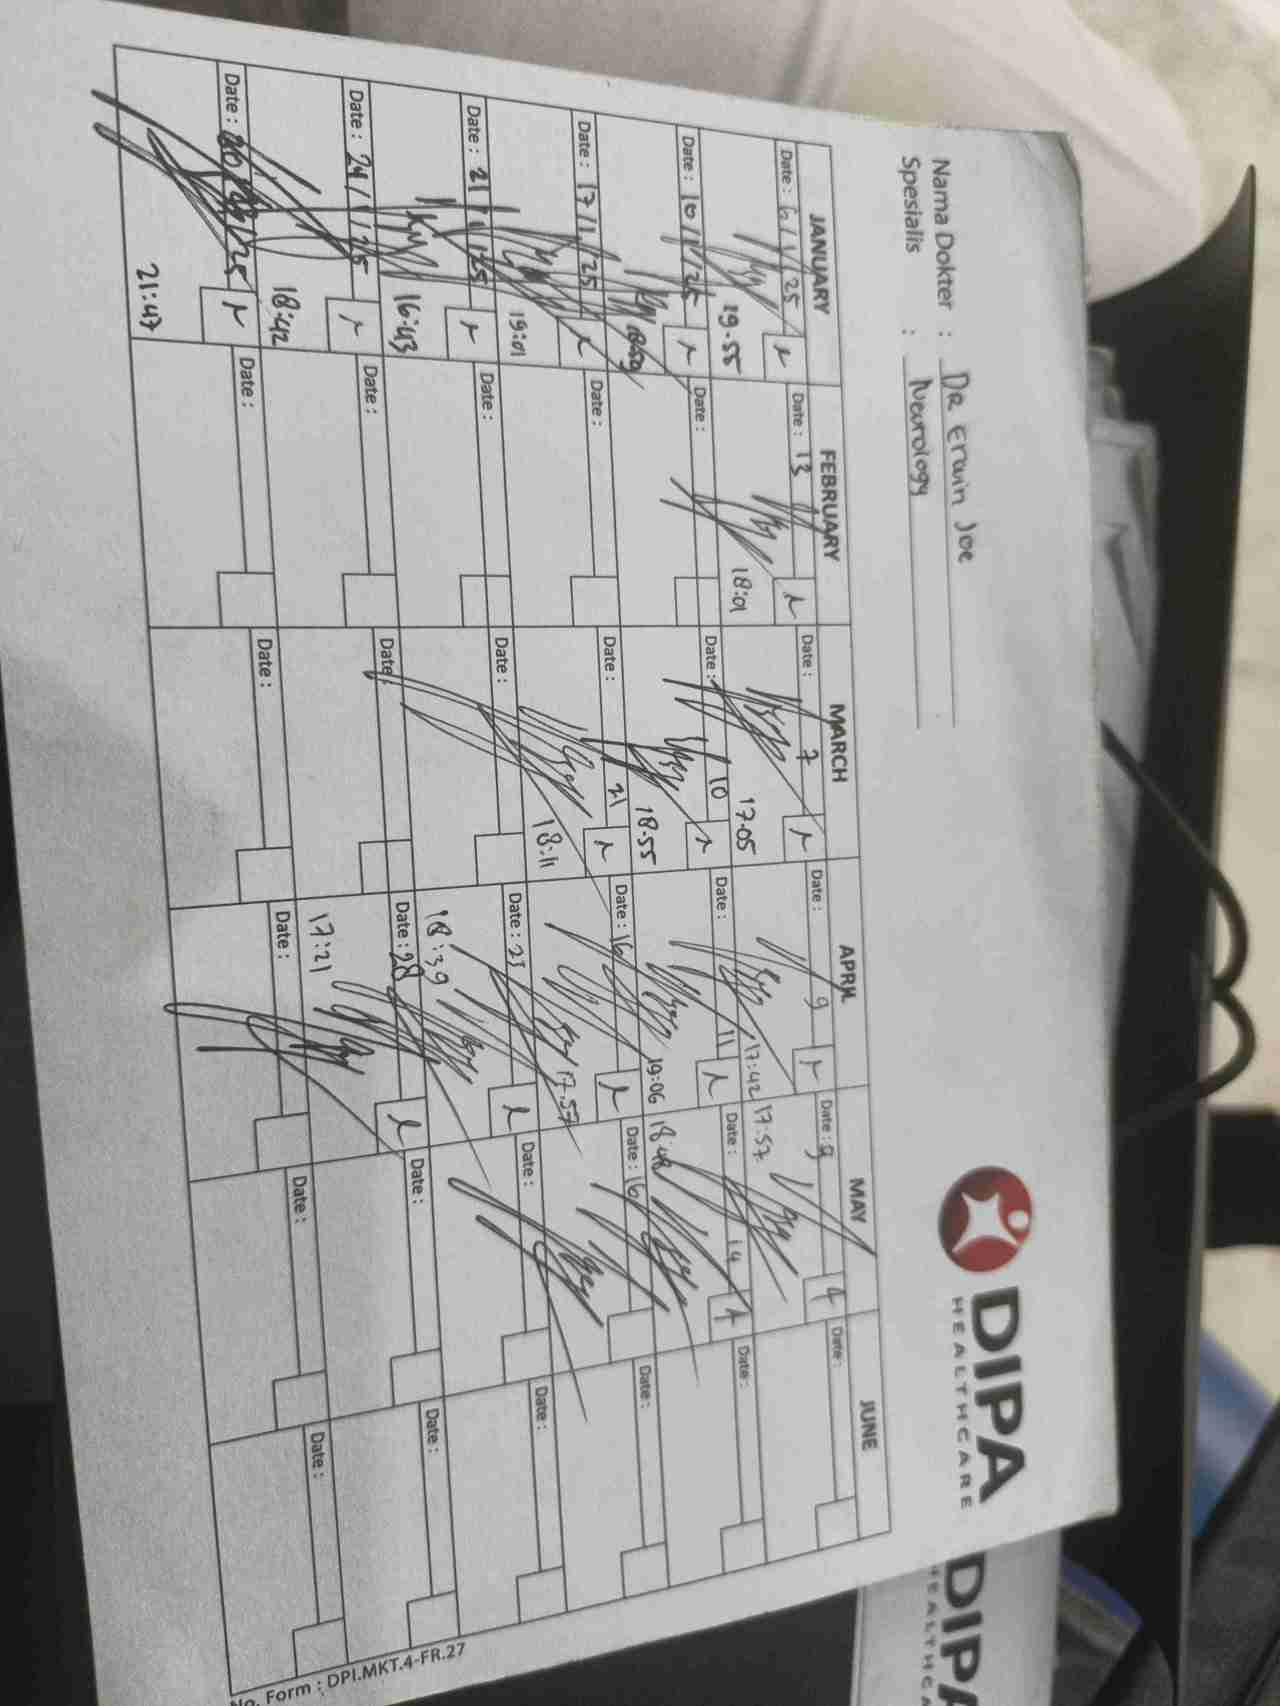 DIPA
HEALTHCARE
Nama Dokter : DR Erwin Joe
Spesialis : Neurology
JANUARY FEBRUARY MARCH APRIL MAY JUNE
Date : 6/1/25 Date : 13 Date : 7 Date : 9 Date : 9 Date :
19.55 18:01 17.05 17:42 17:57
Date : 10/1/25 Date : Date : 10 Date : 11 Date : 14 Date :
18.55 19:06 18:48
Date : 17/1/25 Date : Date : 21 Date : 16 Date : 16 Date :
19:01 18:11 17.57
Date : 21/1/25 Date : Date : Date : 23 Date : Date :
16:43 18:39
Date : 24/1/25 Date : Date : Date : 28 Date : Date :
18:42 17:21
Date : Date : Date : Date : Date : Date :
21:47
No. Form : DPI.MKT.4-FR.27
DIPA